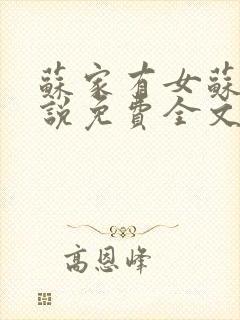 蘇家有女蘇
說免費全文
高恩峰